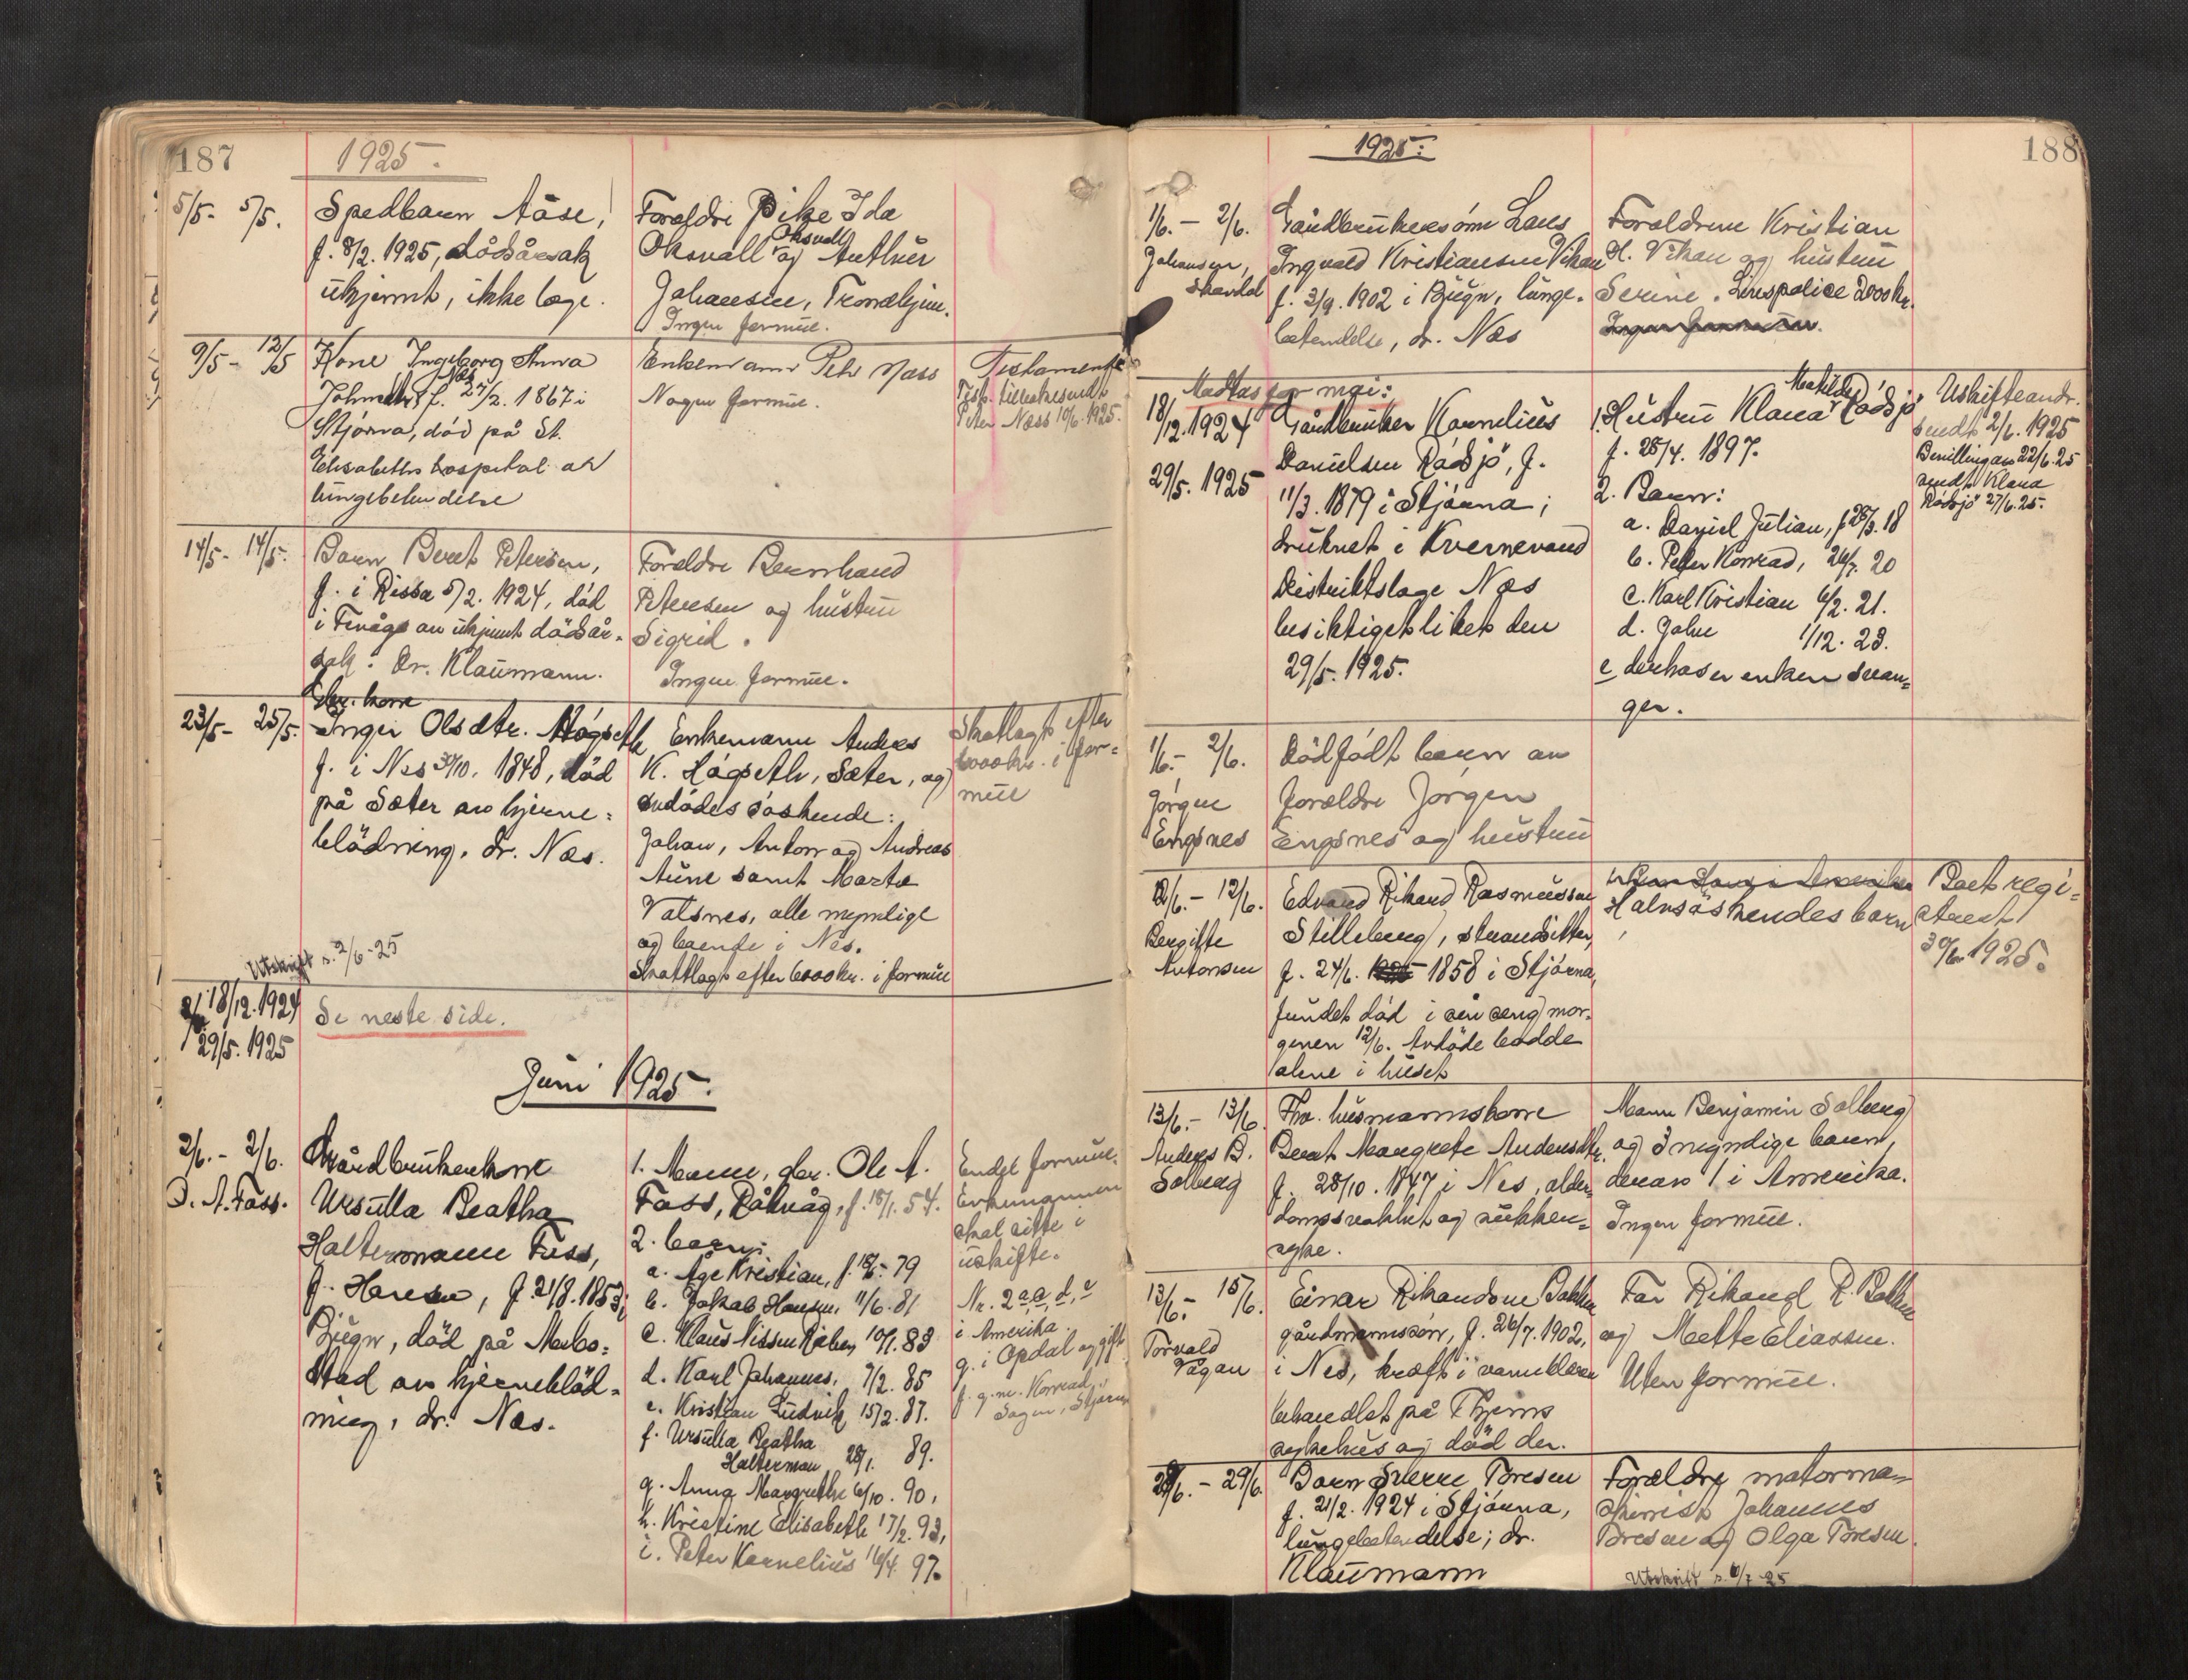 187
1925.
5/5. 5/5.
Spedbarn Åse,
f. 8/2. 1925, dødsårsak
ukjennt, ikke læge.
Forældre Pike Ida
Oksvall og Arthur
Oksvall
Johansen, Trondhjem.
Ingen formue.
9/5 - 12/5
Kone Ingeborg Anna
Næs
f. 27/2. 1867 i
Stjørna, død på St.
Elisabeths hospital av
lungebetendelse
Enkemann Peter Næss
Nogen formue.
Testamente
tilbakesendt
Peter Næss 10/6. 1925.
14/5 - 14/5.
Barn Beret Petersen,
f. i Rissa 5/2. 1924, død
i Fevåg av ukjennt dødsår-
sak. Dr. Klaumann.
Forældre Bernhard
Petersen og hustru
Sigrid.
Ingen formue.
23/5 - 25/5.
Gbr. kone
Inger Olsdtr. Høgseth
f. i Nes 30/10. 1848, død
på Sæter av hjerne-
blødning. dr. Næs.
Enkemann Anders
K. Høgseth, Sæter, og
avdødes søskende:
Johan, Anton og Andreas
Aune samt Marta
Valsnes, alle myndige
og boende i Nes.
Skattlagt efter 6000 kr. i formue
Skattlagt efter
6000 kr. i for-
mue
Utskrift s. 2/6-25
18/12. 1924
29/5. 1925
Se neste side.
Juni 1925.
2/6. - 2/6.
O. A. Fass.
Gårdbrukerkone
Ursulla Beatha
Haltermann Fass,
f. Hansen, f. 21/8. 1853 i
Bjugn, død på Melbo-
stad av hjerneblød-
ning, dr. Næs.
1. Mann, gbr. Ole A.
Fass, Råkvåg, f. 18/1. 54.
2. barn:
a. Åge Kristian, f. 79
b. Jakob Hansen, 11/6. 81
c. Klaus Nissen 10/1. 83
d. Karl Johannes, 7/2. 85
e. Kristian Ludvik 15/2. 87.
f. Ursulla Beatha
Halterman 28/1. 89.
g. Anna Margrethe 6/10. 90,
h. Kristine Elisabeth 17/2. 93,
i. Peter Kornelius 16/4. 97.
Endel formue.
Enkemannen
skal sitte i
uskifte.
Nr. 2 a, c, d, e
i Amerika.
g. i Opdal og gift
f. g. m. Konrad
Sagen, Stjørna
188
1925.
1/6. - 2/6.
Johansen,
Skavdal
Gårdbrukersønn Lars
Ingvald Kristiansen Vikan
f. 3/9. 1902 i Bjugn, lunge-
betendelse, dr. Næs
Forældrene Kristian
H. Vikan og hustru
Serine. Livspolice 2000 kr.
Ingen formue.
Mottas for mai:
18/12. 1924
29/5. 1925
Gårdbruker Kornelius
Danielsen Rødsjø, f.
11/3. 1879 i Stjørna;
druknet i Kvernevand
Distriktslæge Næs
besiktiget liket den
29/5. 1925.
1. Hustru Klara Rødsjø
Matilde
f. 25/4. 1897.
2. Barn:
a. Daniel Julian, f. 28/3. 18
b. Peter Konrad, 26/7. 20
c. Karl Kristian 6/2. 21.
d. Johan 1/12. 23.
e derhos er enken svan-
ger.
Uskifteandr.
sendt 2/6. 1925
Bevillingen 22/6. 25
sendt Klara
Rødsjø 27/6. 25.
1/6. - 2/6.
Jørgen
Engsnes
Dødfødt barn av
forældre Jørgen
Engsnes og hustru
12/6. - 12/6.
Bergitte
Antonsen
Edvard Rikard Rasmussen
Stilleberg, strandsitter,
f. 24/6. 1858 i Stjørna,
fundet død i sin seng mor-
genen 12/6. Avdøde bodde
alene i huset
Halvsøskendes barn
Boet regi-
strert
30/6 1925.
13/6. - 13/6.
Anders B.
Solberg
Fhv. husmannskone
Beret Margrete Andersdtr.
f. 28/10. 1847 i Nes, alder-
domssvakhet og sukker-
syke.
Mann Benjamin Solberg
og 3 myndige barn,
derav 1 i Amerika.
Ingen formue.
13/6. - 15/6.
Torvald
Vågan
Einar Rikardsen Bakken
gårdmannssønn, f. 26/7. 1902,
i Nes, kræft i
behandlet på Thjems
sykehus og død der.
Far Rikard R. Bakken
og Mette Eliassen.
Uten formue.
28/6. - 29/6.
Barn Sverre Toresen
f. 21/2. 1924 i Stjørna,
lungebetendelse; dr.
Klaumann
Forældre matorma-
skinist Johannes
Toresen og Olga Toresen.
Utskrift s. 6/7-25